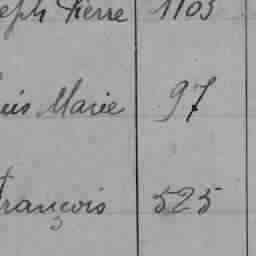 eph Pierre 1103
uis Marie 97
François 525